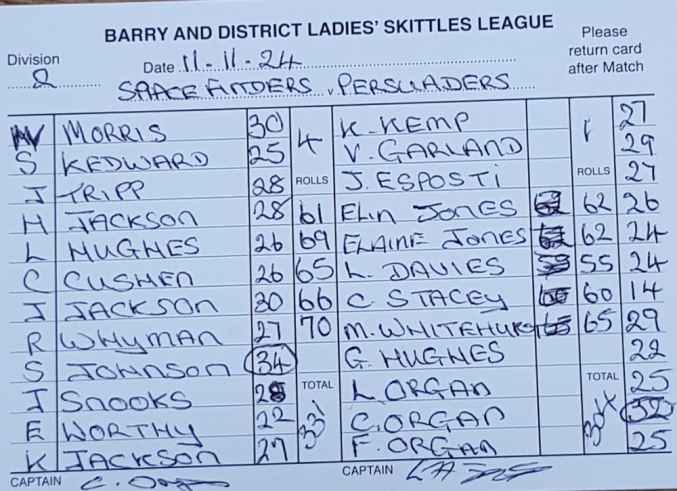 BARRY AND DISTRICT LADIES' SKITTLES LEAGUE
Please return card after Match
Division 2 Date 11-11-24
SPACEFINDERS v PERSUADERS
MORRIS 30 4 K. KEMP 1 27
S KEDWARD 25 V. GARLAND 29
J TRIPP 28 ROLLS J. ESPOSTI ROLLS 27
H JACKSON 28 61 ELIN JONES 62 26
L HUGHES 26 69 ELAINE JONES 62 24
C CUSHEN 26 65 L. DAVIES 55 24
J JACKSON 30 66 C STACEY 60 14
R WHYMAN 27 70 M. WHITEHURST 65 29
S JOHNSON 34 G. HUGHES 22
J SNOOKS 28 TOTAL L. ORGAN TOTAL 25
E WORTHY 22 331 C. ORGAN 304 32
K JACKSON 27 F. ORGAN 25
CAPTAIN CAPTAIN